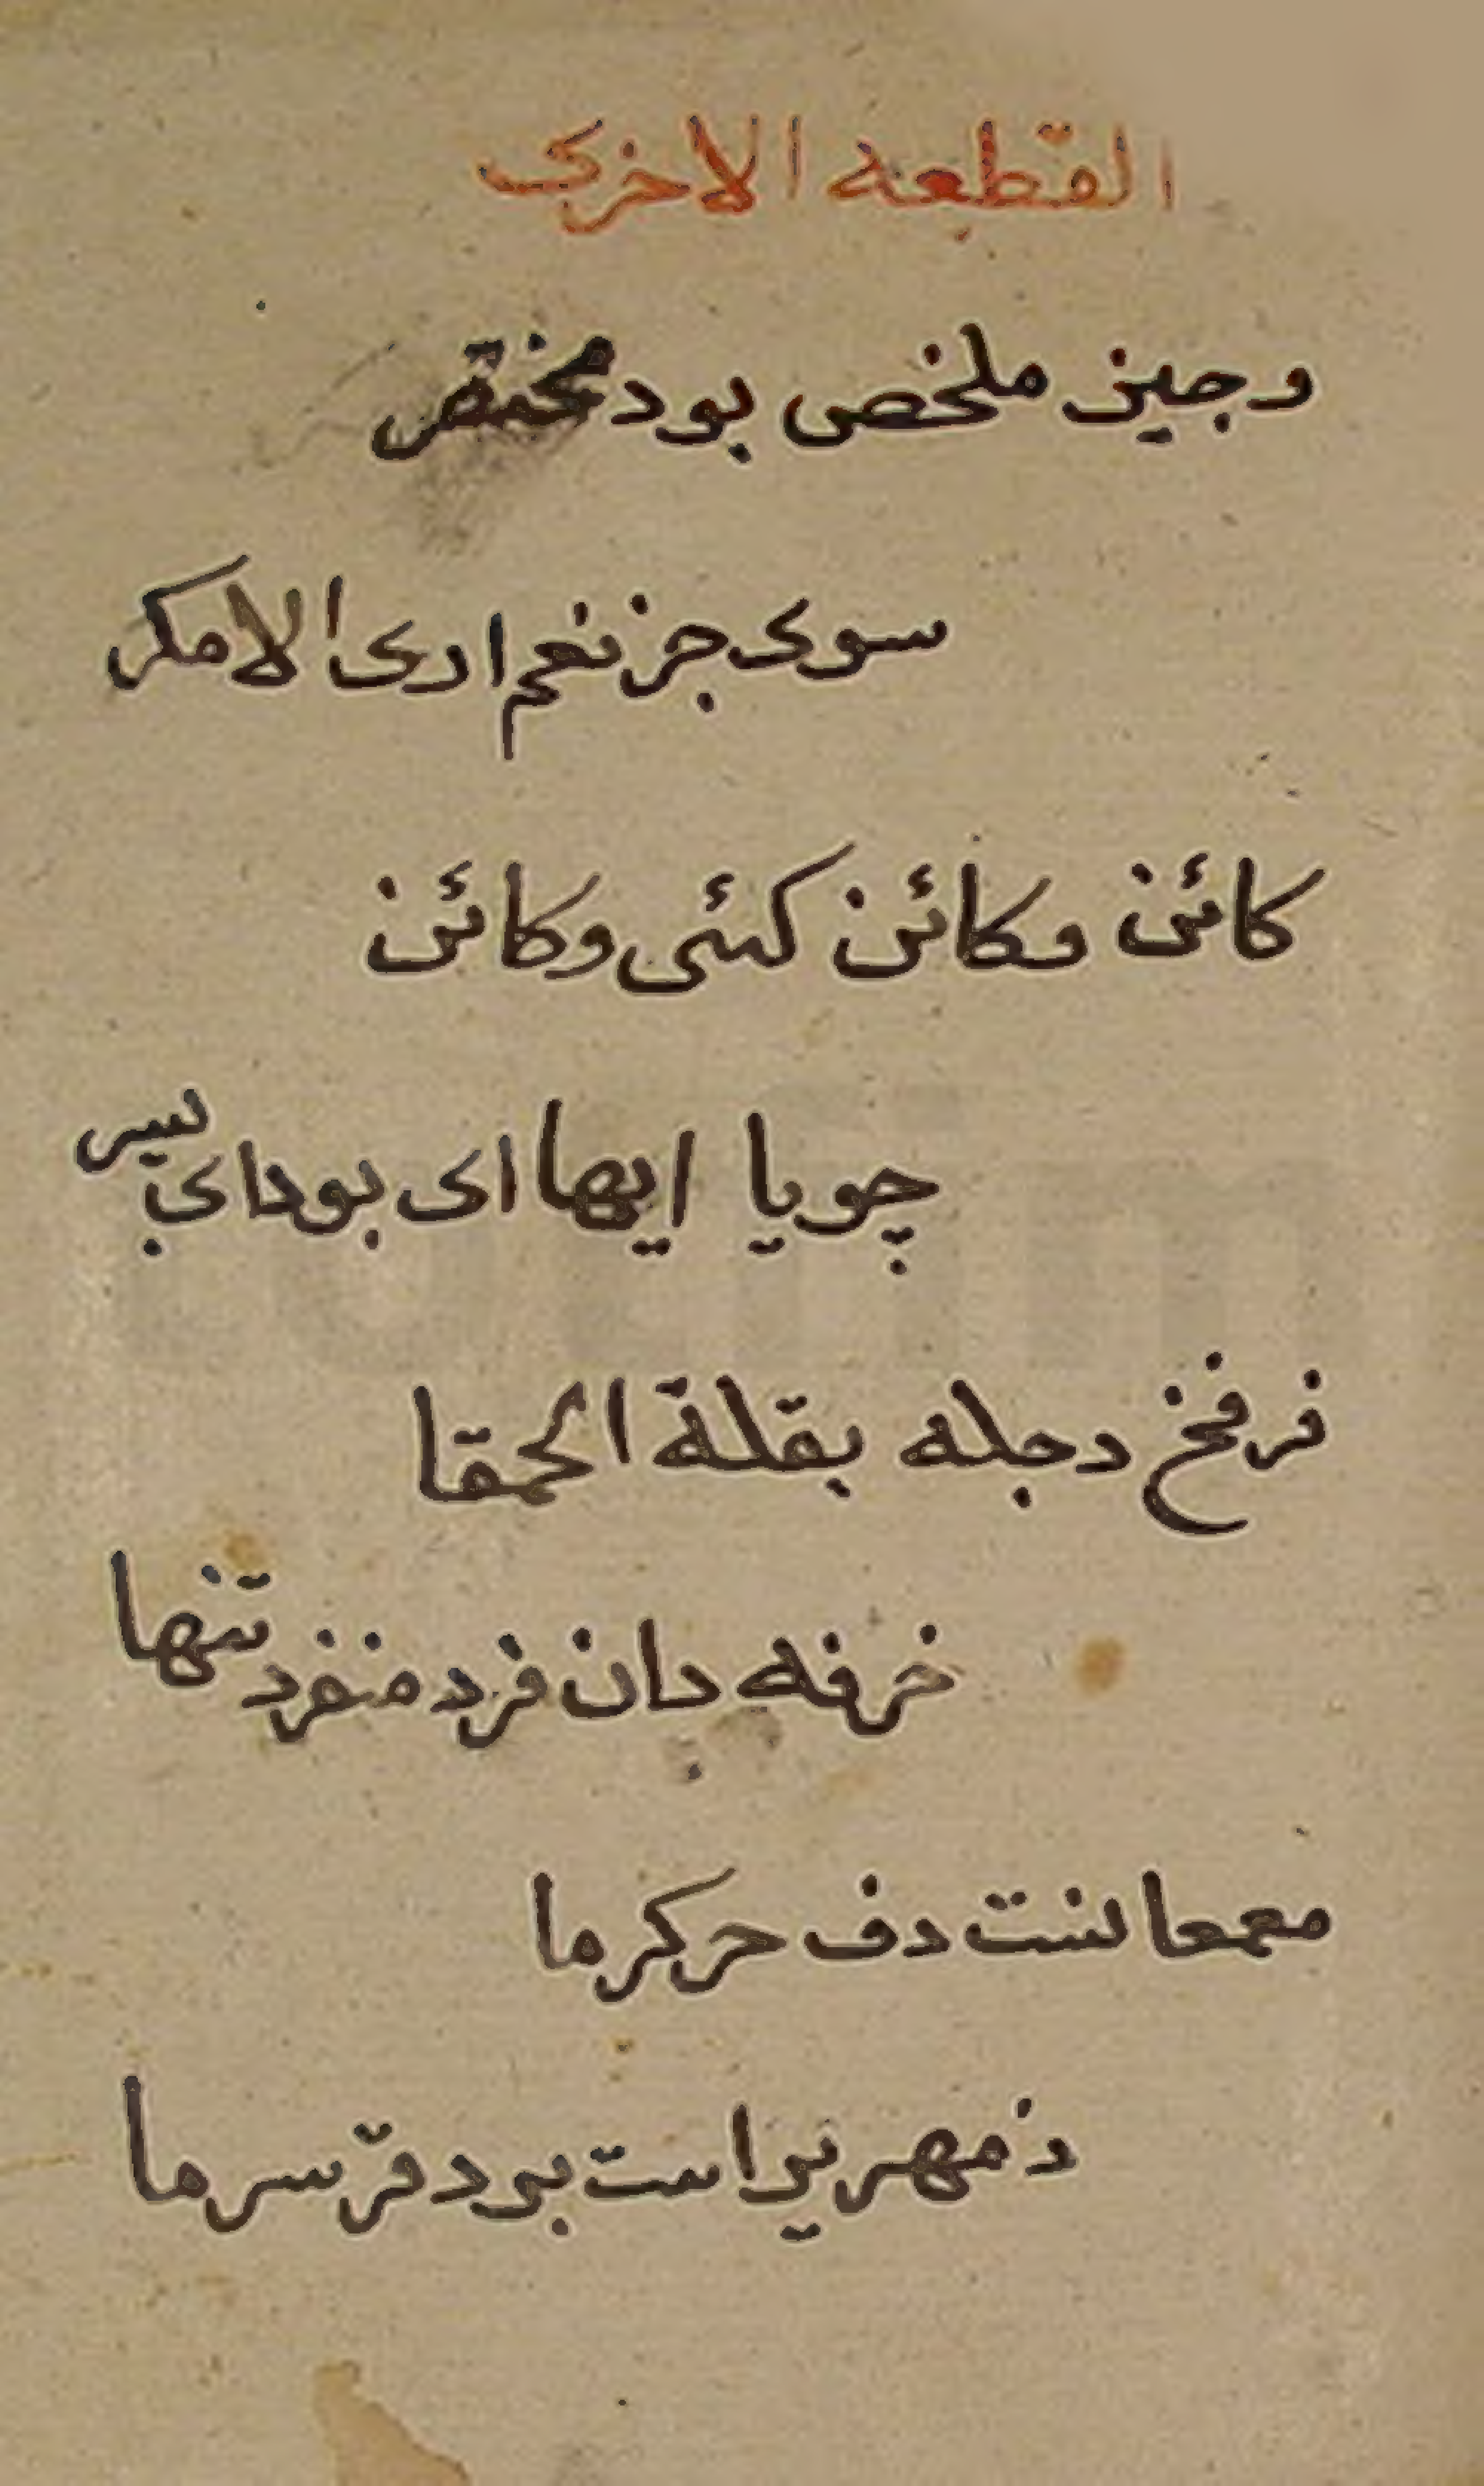 القطعة الاخرى
وجیز ملخص بود مختصر
سوى جز نعم ارى الا مكر
كائن وكائن كئى وكائن
چو یا ایها اى بود اى پسر
فرفخ دجله بقلة الحمقا
خرفه دان فرد منفرد تنها
معمعا نست دف حر كرما
زمهریر است برد قرّ سرما